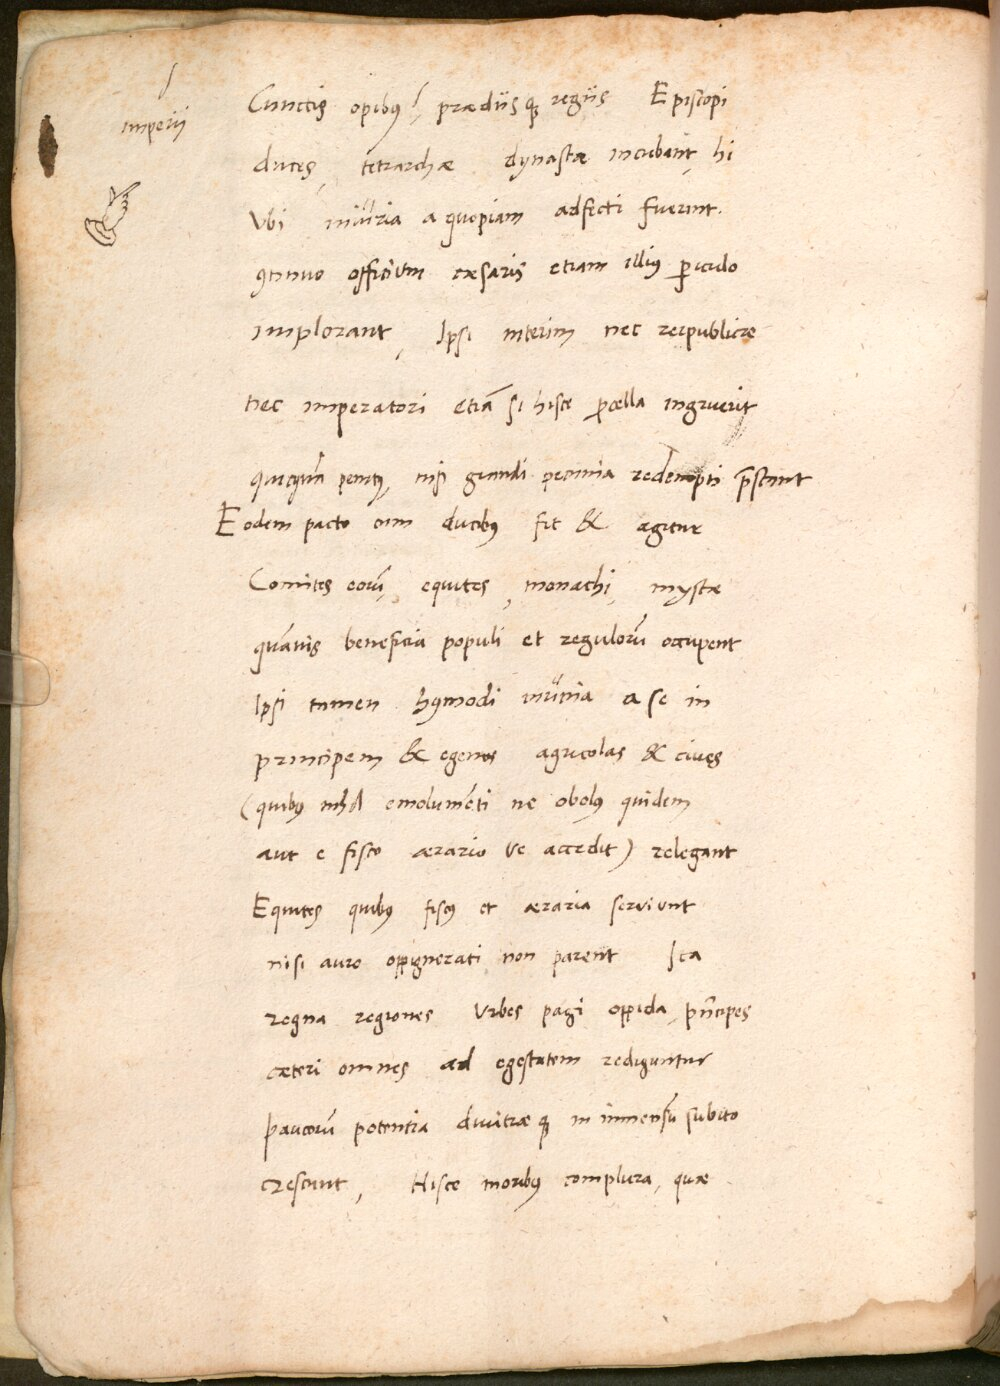 imperii
Cunctis opibus, prædiisque regiis Episcopi
duces, tetrarchæ dynastæ incubant, hi
Vbi iniuria a quopiam adfecti fuerint.
continuo officium cæsaris etiam illius periculo
implorant, Ipsi interim nec reipublicæ
nec imperatori etiā si hisce procella ingruerit
quicquā penitus, nisi grandi pecunia redempti præstant
Eodem pacto cum ducibus fit & agitur
Comites eorū, equites, monachi, mystæ
quāuis beneficia populi et regulorū occupent
Ipsi tamen huiusmodi iniuria a se in
principem & egenos agricolas & ciues
(quibus nihil emolumēti ne obolus quidem
aut e fisco ærario ve accedit) relegant
Equites quibus fiscus et æraria seruiunt
nisi auro oppignerati non parent Ita
regna regiones Vrbes pagi oppida, prīcipes
cæteri omnes ad egestatem rediguntur
paucorū potentia diuitiæque in immensū subito
crescunt, Hisce moribus complura, quæ